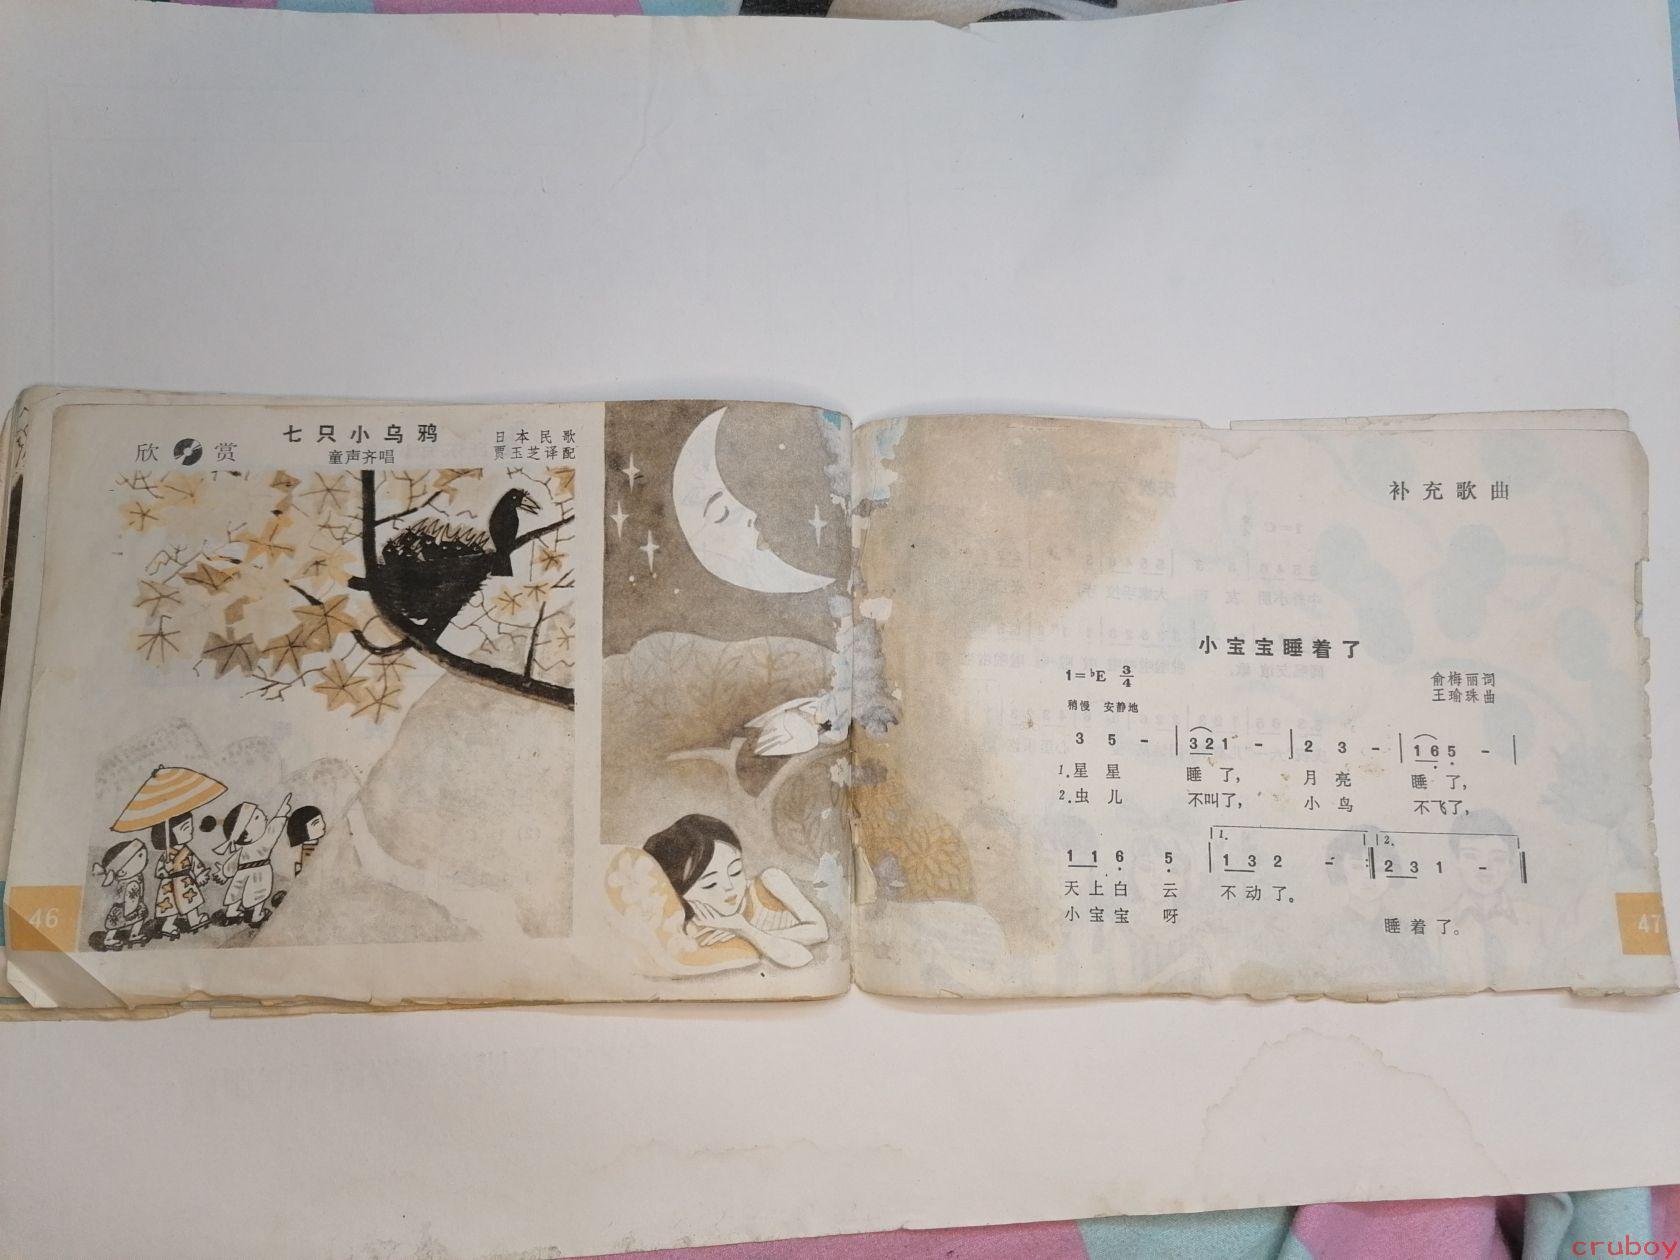 欣 赏
七只小乌鸦
童声齐唱
日本民歌
贾玉芝译配
46
补充歌曲
小宝宝睡着了
1=♭E 3/4
俞梅丽词
王瑜珠曲
稍慢 安静地
3 5 - | 3 2 1 - | 2 3 - | 1 6 5 - |
1.星 星 睡 了, 月 亮 睡 了,
2.虫 儿 不叫了, 小 鸟 不飞了,
1. 2.
1 1 6 5 | 1 3 2 - :‖ 2 3 1 - ‖
天上白 云 不动了。
小宝宝 呀 睡着了。
47
cruboy